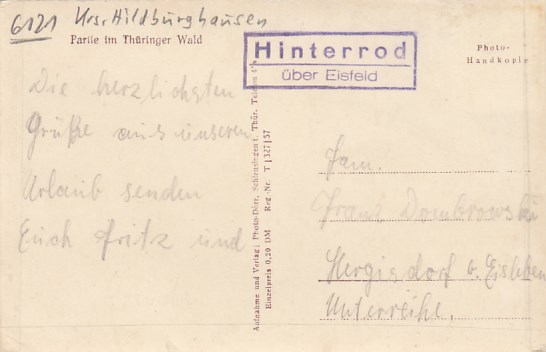 6121 Krs. Hildburghausen
Partie im Thüringer Wald
Hinterrod
über Eisfeld
Photo-
Handkopie
Die herzlichsten
Grüße aus unseren
Urlaub senden
Euch Fritz und
Aufnahme und Verlag: Photo-Dörr, Schleusingen i. Thür. Telefon
Einzelpreis 0,20 DM Reg.-Nr. T 1 327/57
Fam.
Frank Dombrowski
Hergisdorf b. Eisleben
Unterreihe.